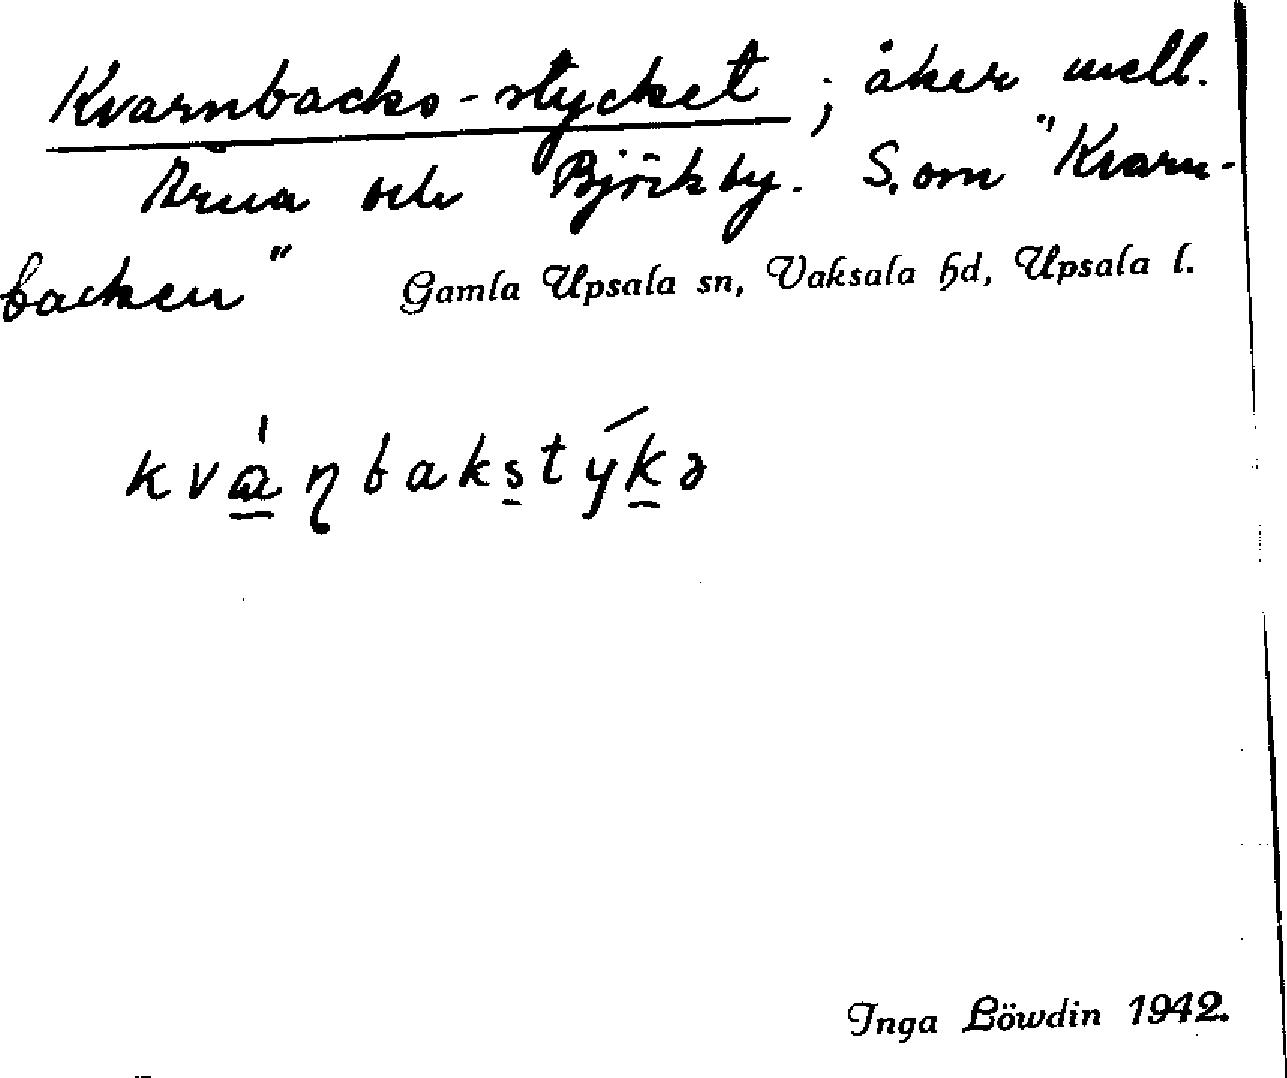 Kvarnbacks-stycket ; åker mell.
Ärna och Björkby. S. om "Kvarn-
backen" Gamla Upsala sn, Vaksala hd, Upsala l.
kvа̱́ɳbaks̱týḵə
Inga Löwdin 1942.